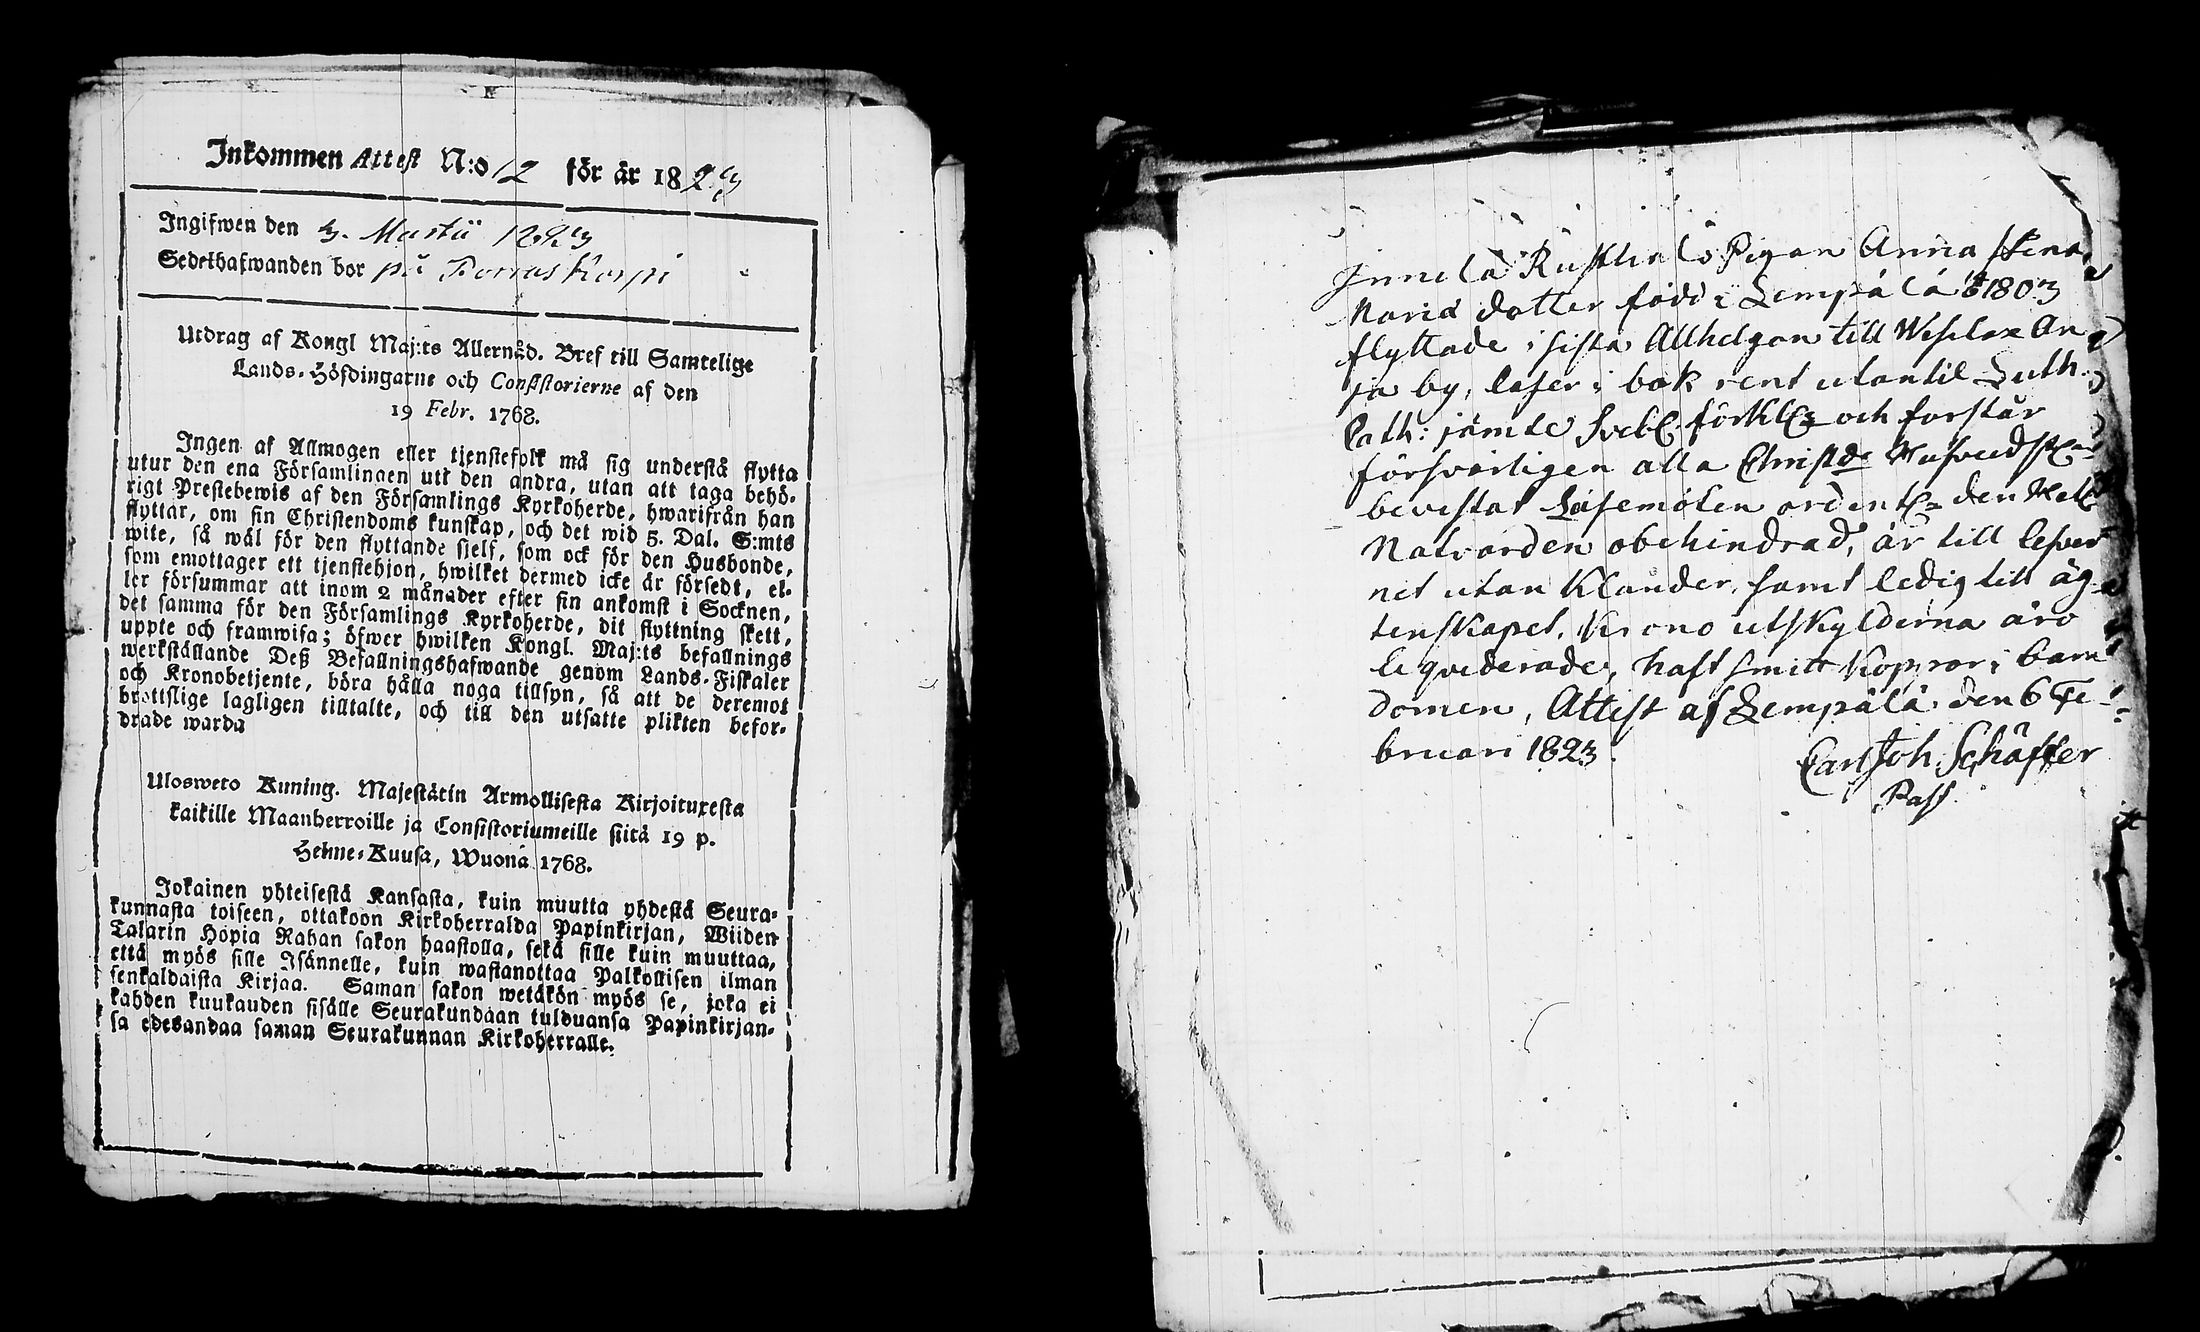 Inkommen Attest N:o 12 för år 1823
Ingifwen den 3. Martii 1823
Sedelhafwanden bor på Porraskorpi
Utdrag af Kongl Maj:ts Allernåd. Bref till Samtelige
Lands-Höfdingarne och Consistorierne af den
19 Febr. 1768.
Ingen af Allmogen eller tjenstefolk må sig understå flytta
utur den ena Församlingen uti den andra, utan att taga behö-
rigt Prestebewis af den Församlings Kyrkoherde, hwarifrån han
flyttar, om sin Christendoms kunskap, och det wid 5. Dal. S:mts
wite, så wäl för den flyttande sjelf, som ock för den Husbonde,
som emottager ett tjenstehjon, hwilket dermed icke är försedt, el-
ler försummar att inom 2 månader efter sin ankomst i Socknen,
det samma för den Församlings Kyrkoherde, dit flyttning skett,
uppte och framwisa; öfwer hwilken Kongl. Maj:ts befallnings
werkställande Deß Befallningshafwande genom Lands-Fiskaler
och Kronobetjente, böra hålla noga tillsyn, så att de deremot
brottslige lagligen tilltalte, och till den utsatte plikten befor-
drade warda
Ulosweto Kuning. Majestätin Armollisesta Kirjoituxesta
kaikille Maanherroille ja Consistoriumeille siitä 19 p.
Helme-Kuusa, Wuonä 1768.
Jokainen yhteisestä Kansasta, kuin muutta yhdestä Seura-
kunnasta toiseen, ottakoon Kirkoherralda Papinkirjan, Wiiden
Talarin Hopia Rahan sakon haastolla, sekä sille kuin muuttaa,
että myös sille Isännelle, kuin wastanottaa Palkollisen ilman
senkaldaista Kirjaa. Saman sakon wetäkön myös se, joka ei
kahden kuukauden sisälle Seurakundaan tulduansa Papinkirjan-
sa edesandaa saman Seurakunnan Kirkoherralle.
Innilä Rusthåls Pigan Anna Stena
Maria dotter född i Lempälä 1803
flyttade i sista Allhelgon till Wesilax An
ja by, läser i bok rent utantil Luth.
Cath: jämte Sveb. förkl. och forstår
försvarligen alla Christd. Hufvudst
bevistat Läsemöten ordentl. den Hel.
Natvarden obehindrad, är till lefver
net utan Klander, samt ledig till äg-
tenskapet, Krono utskylderna äro
liqviderade, haft smitt Koppor i barn
domen, Attest af Lempälä den 6 Fe-
bruari 1823.
Carl Joh. Schäffer
Past